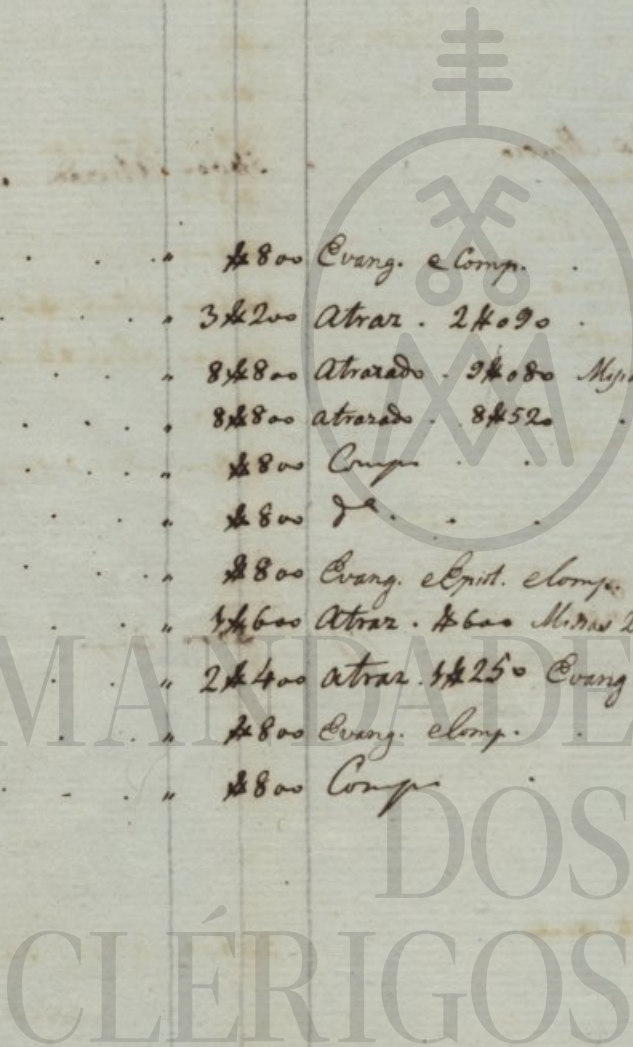 " $800 Evang. e Comp.
" 3$200 Atraz. 2$090
" 8$800 Atrazado. 9$080
" 8$800 atrazado. 8$520
" $800 Comp.
" $800 Dª.
" $800 Evang. e Epist. e Comp.
" 1$600 Atraz. $600 Missas 2
" 2$400 atraz. 1$250 Evang
" $800 Evang. e Comp.
" $800 Comp.
MANDADE
DOS
CLÉRIGOS